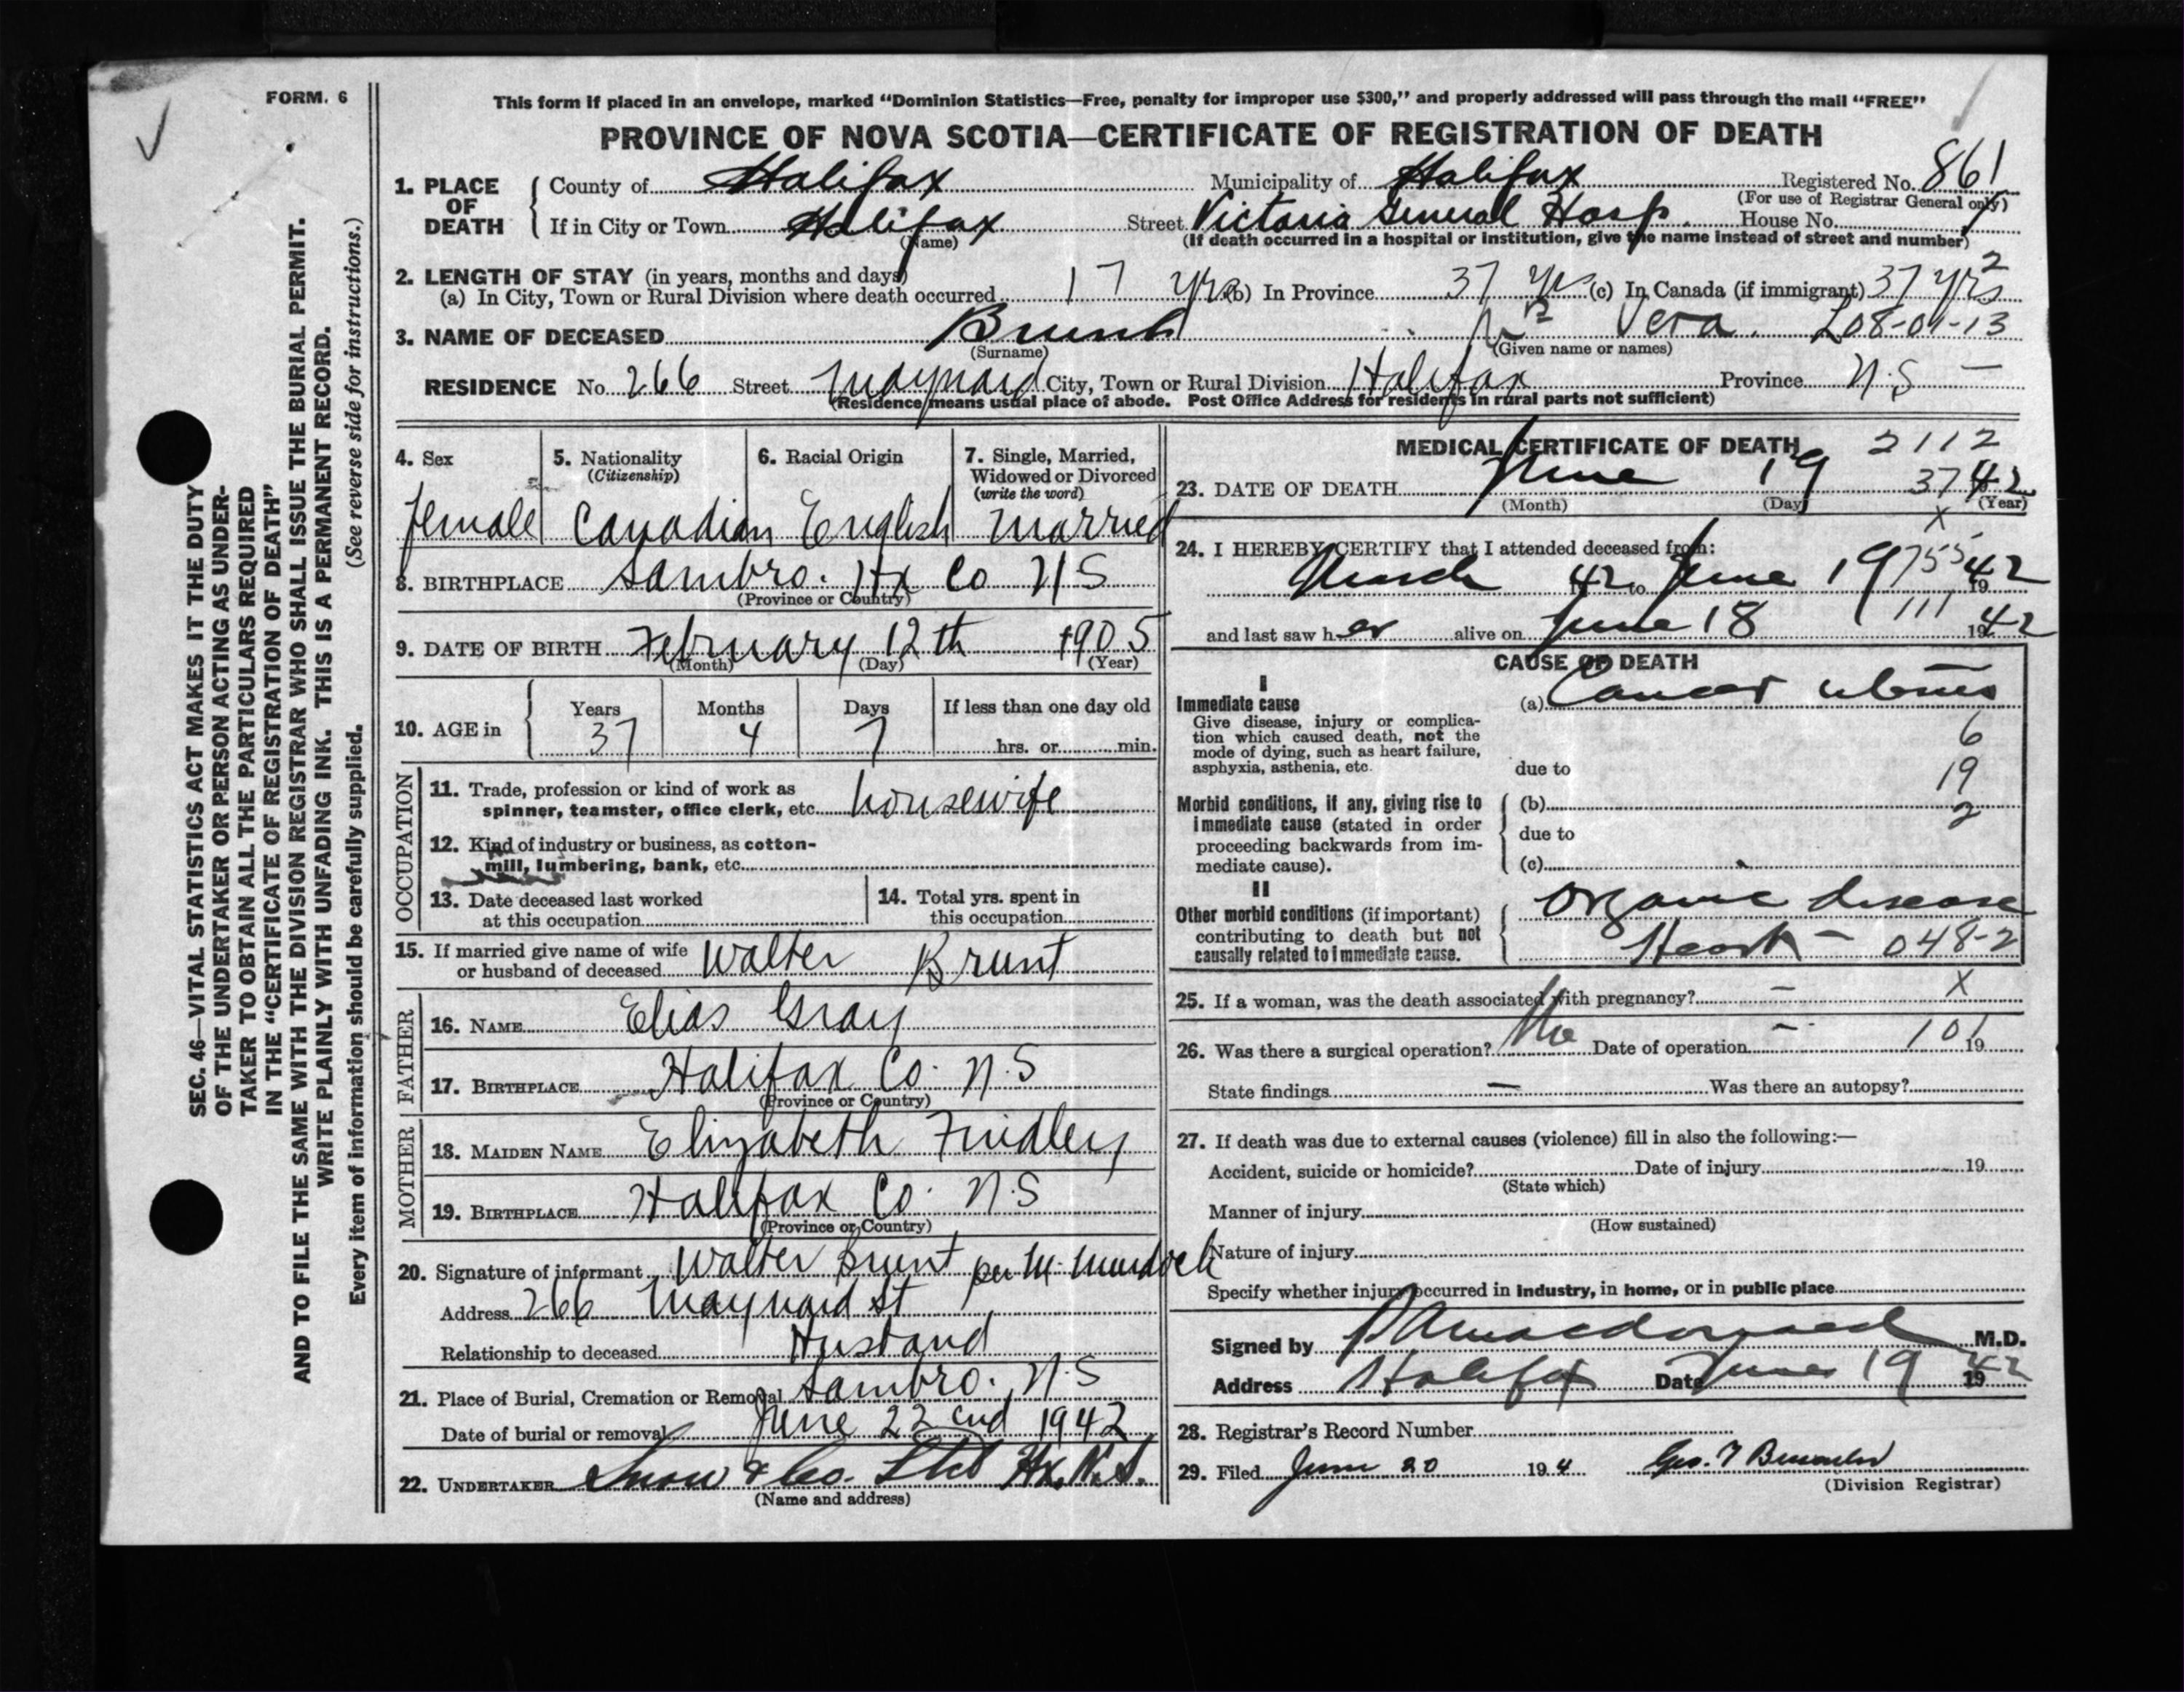 FORM. 6
This form if placed in an envelope, marked “Dominion Statistics—Free, penalty for improper use $300,” and properly addressed will pass through the mail “FREE”
PROVINCE OF NOVA SCOTIA—CERTIFICATE OF REGISTRATION OF DEATH
1. PLACE OF DEATH
County of Halifax Municipality of Halifax Registered No. 861
(For use of Registrar General only)
If in City or Town Halifax Street Victoria General Hosp. House No.
(Name) (If death occurred in a hospital or institution, give the name instead of street and number)
2. LENGTH OF STAY (in years, months and days) 2
(a) In City, Town or Rural Division where death occurred 17 yrs (b) In Province 37 yrs (c) In Canada (if immigrant) 37 yrs
3. NAME OF DECEASED Brunt Vera. L08-01-13
(Surname) (Given name or names)
RESIDENCE No. 266 Street Maynard City, Town or Rural Division Halifax Province N.S —
(Residence means usual place of abode. Post Office Address for residents in rural parts not sufficient)
4. Sex
Female
5. Nationality
(Citizenship)
Canadian
6. Racial Origin
English
7. Single, Married,
Widowed or Divorced
(write the word)
Married
8. BIRTHPLACE Sambro. Hx Co N S
(Province or Country)
9. DATE OF BIRTH February 12th 1905
(Month) (Day) (Year)
10. AGE in
Years Months Days If less than one day old
37 4 7 hrs. or min.
OCCUPATION
11. Trade, profession or kind of work as
spinner, teamster, office clerk, etc. housewife
12. Kind of industry or business, as cotton-
mill, lumbering, bank, etc.
13. Date deceased last worked
at this occupation
14. Total yrs. spent in
this occupation
15. If married give name of wife
or husband of deceased Walter Brunt
FATHER
16. NAME Elias Gray
17. BIRTHPLACE Halifax Co. N.S
(Province or Country)
MOTHER
18. MAIDEN NAME Elizabeth Findley
19. BIRTHPLACE Halifax Co. N.S
(Province or Country)
20. Signature of informant Walter Brunt per M. Murdoch
Address 266 Maynard St
Relationship to deceased Husband
21. Place of Burial, Cremation or Removal Sambro. N.S
Date of burial or removal June 22nd 1942
22. UNDERTAKER Snow & Co. Ltd Hx. N.S.
(Name and address)
MEDICAL CERTIFICATE OF DEATH 2112
23. DATE OF DEATH June 19 37 42
(Month) (Day) (Year)
X
24. I HEREBY CERTIFY that I attended deceased from:
March 42 to June 19 755 1942
111
and last saw her alive on June 18 1942
CAUSE OF DEATH
I
Immediate cause
Give disease, injury or complica-
tion which caused death, not the
mode of dying, such as heart failure,
asphyxia, asthenia, etc.
(a) Cancer uterus
6
due to
19
Morbid conditions, if any, giving rise to
immediate cause (stated in order
proceeding backwards from im-
mediate cause).
(b)
2
due to
(c)
II
Other morbid conditions (if important)
contributing to death but not
causally related to immediate cause.
Organic disease
Heart — 048-2
25. If a woman, was the death associated with pregnancy? — X
26. Was there a surgical operation? No Date of operation — 101 19
State findings — Was there an autopsy?
27. If death was due to external causes (violence) fill in also the following:—
Accident, suicide or homicide? Date of injury 19
(State which)
Manner of injury
(How sustained)
Nature of injury
Specify whether injury occurred in industry, in home, or in public place
Signed by Macdonald M.D.
Address Halifax Date June 19 1942
28. Registrar's Record Number
29. Filed June 20 194 Geo.
(Division Registrar)
SEC. 46—VITAL STATISTICS ACT MAKES IT THE DUTY
OF THE UNDERTAKER OR PERSON ACTING AS UNDER-
TAKER TO OBTAIN ALL THE PARTICULARS REQUIRED
IN THE “CERTIFICATE OF REGISTRATION OF DEATH”
AND TO FILE THE SAME WITH THE DIVISION REGISTRAR WHO SHALL ISSUE THE BURIAL PERMIT.
WRITE PLAINLY WITH UNFADING INK. THIS IS A PERMANENT RECORD.
Every item of information should be carefully supplied. (See reverse side for instructions.)